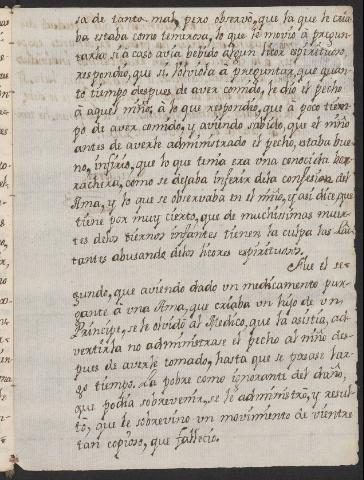 sa de tanto mal, pero observò, que la que le cria
ba estaba como temerosa, lo que le moviò à pregun
tarla si à caso avia bebido algun licor espirituoso,
respondio, que si, bolviola à preguntar, que quan
to tiempo despues de aver comido, le dio el pecho
à aquel niño; à lo que respondiò, que à poco tiem
po de aver comido, y aviendo sabido, que el niño
antes de averle administrado el pecho, estaba bue
no, infiriò, que lo que tenia era una conocida bor
rachera, como se dejaba inferir de la confesion del
Ama, y lo que se observaba en el niño, y asi dice, que
tiene por muy cierto, que de muchisimas muer
tes delos tiernos infantes tienen la culpa las Lac
tantes abusando delos licores espirituosos.
Fue el se
gundo, que aviendo dado un medicamento pur
gante à una Ama, que criaba un hijo de un
Principe, se le olvidò al Medico, que la asistia, ad
vertirla no administrase el pecho al niño des
pues de averle tomado, hasta que se pasase lar
go tiempo. La pobre como ignorante del daño,
que podia sobrevenir, se le administrò, y resul
tò, que le sobrevino un movimiento de vientre
tan copioso, que falleciò.